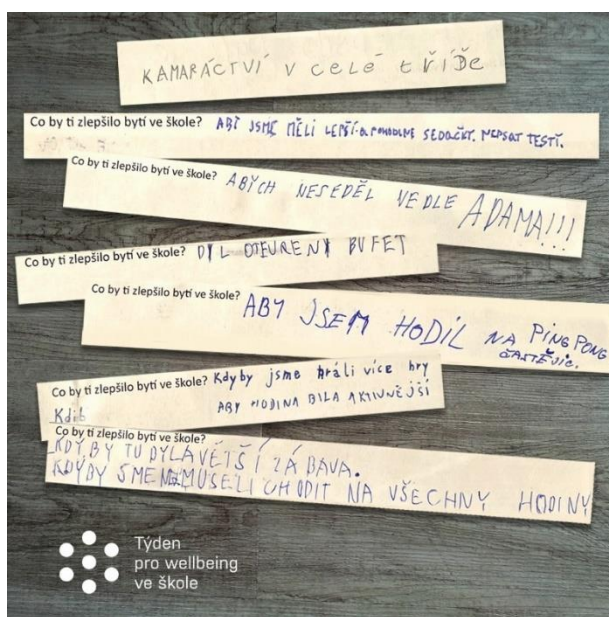 KAMARÁCTVÍ V CELÉ tŘÍĎe
Co by ti zlepšilo bytí ve škole? ABI JSME MĚLI LEPŠÍ A POHODLNE SEDAČKY. NEPSAT TESTÍ.
Co by ti zlepšilo bytí ve škole? ABYCH NESEDĚL VEDLE ADAMA!!!
Co by ti zlepšilo bytí ve škole? DYL OTEVŘENÝ BUFET
Co by ti zlepšilo bytí ve škole? ABY JSEM HODIL NA PING PONG
ČASTĚJIC.
Co by ti zlepšilo bytí ve škole? Kdyby jsme hráli více hry
Kdib ABY HODINA BILA AKTIVNĚJŠÍ
Co by ti zlepšilo bytí ve škole?
KDYBY TU BYLA VĚTŠÍ ZÁBAVA.
KDYBY SME NEMUSELI CHODIT NA VŠECHNY HODINY
Týden
pro wellbeing
ve škole